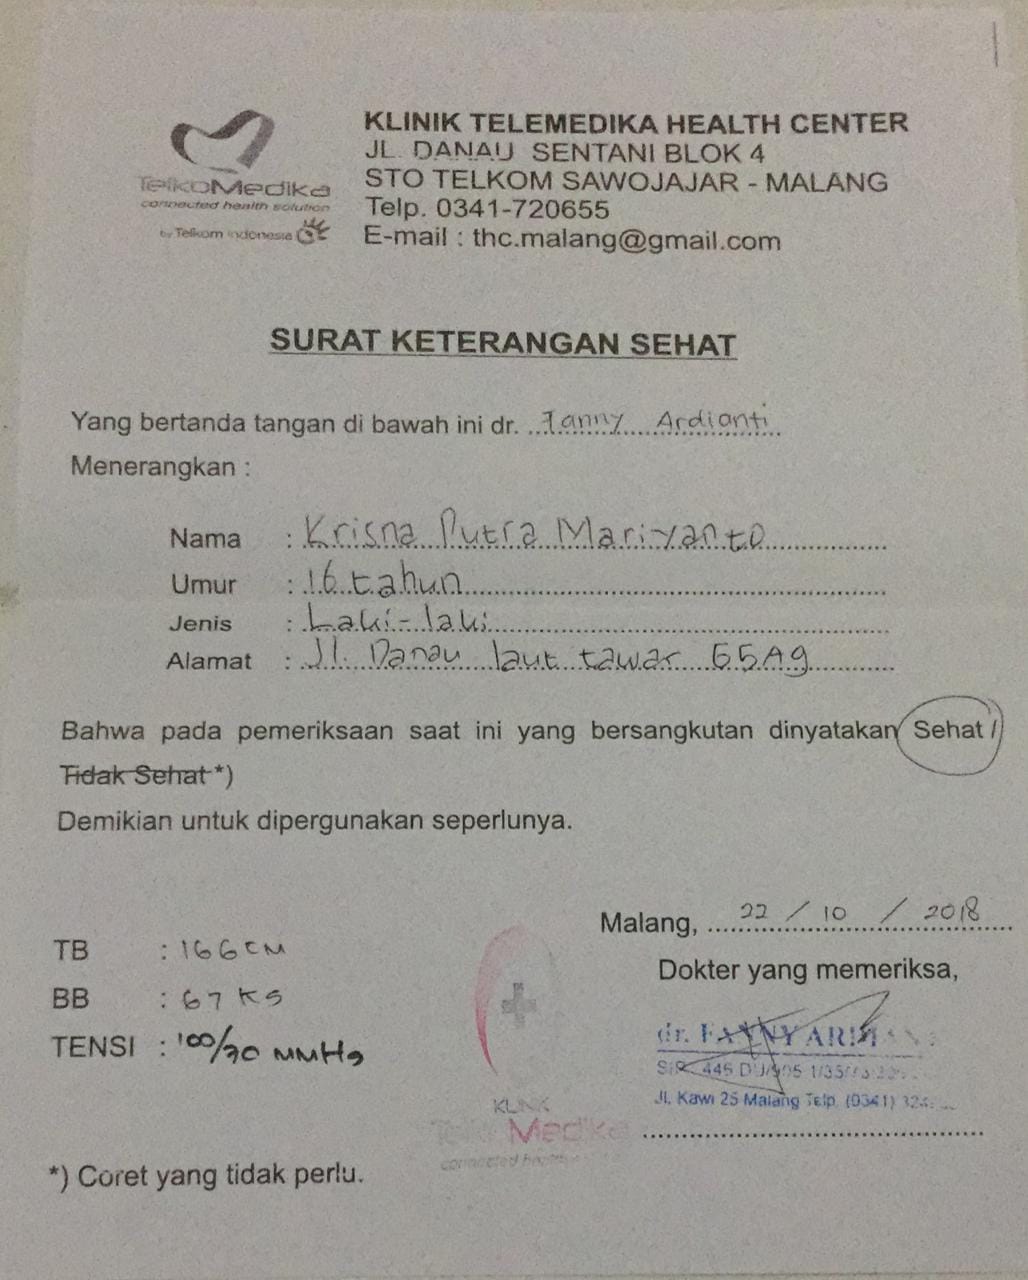 TelkoMedika
connected health solution
by Telkom Indonesia
KLINIK TELEMEDIKA HEALTH CENTER
JL. DANAU SENTANI BLOK 4
STO TELKOM SAWOJAJAR - MALANG
Telp. 0341-720655
E-mail : thc.malang@gmail.com
SURAT KETERANGAN SEHAT
Yang bertanda tangan di bawah ini dr. Fanny Ardianti
Menerangkan :
Nama : Krisna Putra Mariyanto
Umur : 16 tahun
Jenis : Laki-laki
Alamat : Jl. Danau laut tawar G5A9
Bahwa pada pemeriksaan saat ini yang bersangkutan dinyatakan Sehat /
Tidak Sehat *)
Demikian untuk dipergunakan seperlunya.
Malang, 22 / 10 / 2018
TB : 166 CM
BB : 67 KG
TENSI : 100/70 MMHg
Dokter yang memeriksa,
dr. FANNY
Jl. Kawi 25 Malang Telp. (0341)
KLINIK
TelkoMedika
connected health
*) Coret yang tidak perlu.